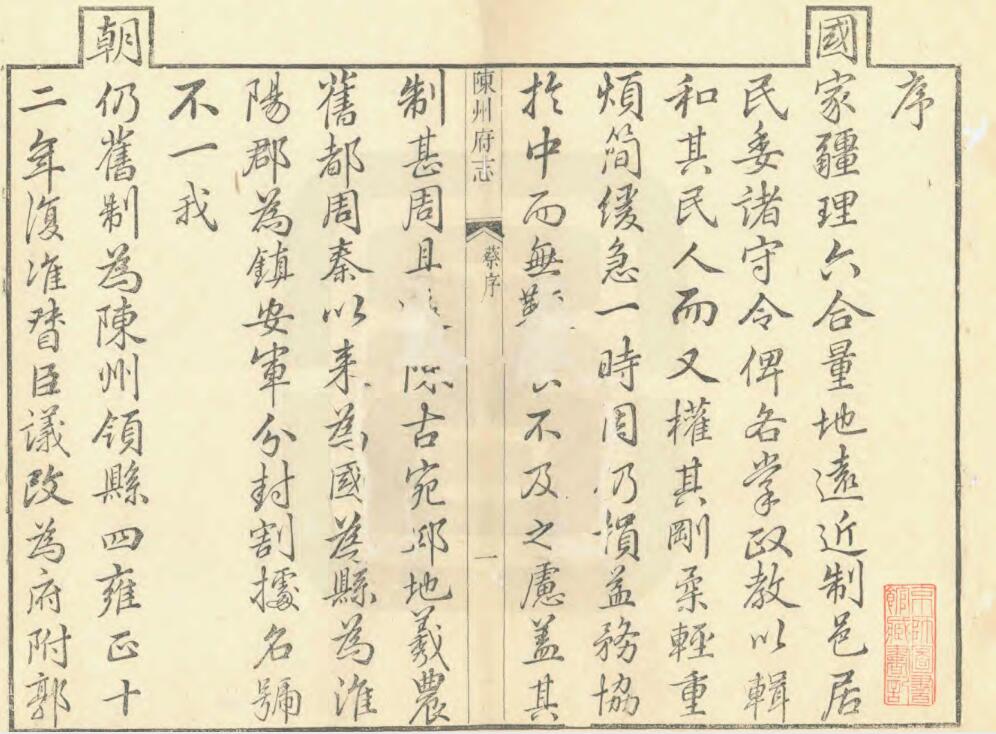 序
國家疆理六合量地遠近制邑居
民委諸守令俾各掌政教以輯
和其民人而又權其剛柔輕重
煩簡緩急一時因乃損益務協
於中而無不及之慮蓋其
陳州府志
蔡序
一
制甚周且陳古宛邱地羲農
舊都周秦以来為國為縣為淮
陽郡為鎮安軍分封割據名號
不一我
朝仍舊制為陳州領縣四雍正十
二年復准督臣議改為府附郭
京師圖書館藏書記